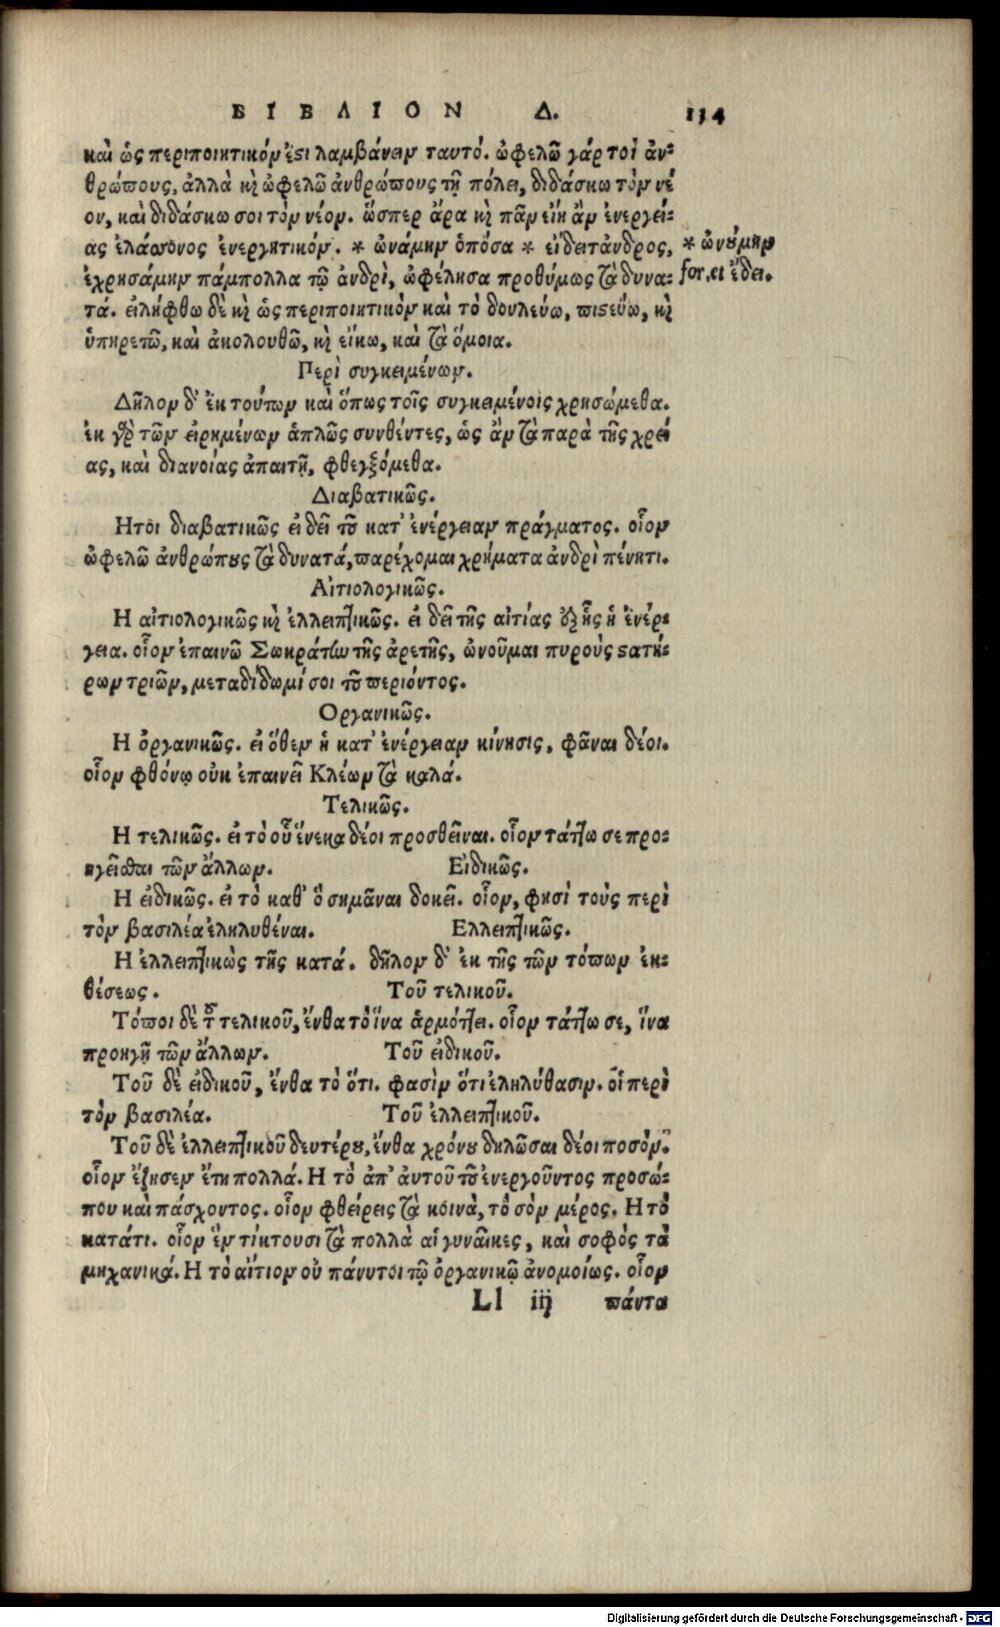 ΒΙΒΛΙΟΝ Δ. 114
καὶ ὡς περιποιητικόν ἐστι λαμβάνειν ταυτό. ὠφελῶ γάρ τοι ἀν-
θρώπους, ἀλλὰ κὶ ὠφελῶ ἀνθρώπους τῇ πόλει, διδάσκω τὸν νέ
ον, καὶ διδάσκω σοι τὸν νέον. ὥσπερ ἄρα κὶ πᾶν εἴη ἂν ἐνεργεί-
ας ἐλάσσονος ἐνεργητικόν. * ὠνάμην ὁπόσα * εἴδει τἀνδρος, * ὠνούμην
ἐχρησάμην πάμπολλα τῷ ἀνδρὶ, ὠφέλησα προθύμως τὰ δυνα- for. et ἔδει.
τά. εἰλήφθω δὲ κὶ ὡς περιποιητικὸν καὶ τὸ δουλεύω, πιστεύω, κὶ
ὑπηρετῶ, καὶ ἀκολουθῶ, κὶ εἴκω, καὶ τὰ ὅμοια.
Περὶ συγκειμένων.
Δῆλον δ' ἐκ τούτων καὶ ὅπως τοῖς συγκειμένοις χρησώμεθα.
ἐκ γὰρ τῶν εἰρημένων ἁπλῶς συνθέντες, ὡς ἂν τὰ παρὰ τῆς χρεί
ας, καὶ διανοίας ἀπαιτῇ, φθεγξόμεθα.
Διαβατικῶς.
Ητοι διαβατικῶς εἰ δεῖ τοῦ κατ' ἐνέργειαν πράγματος. οἷον
ὠφελῶ ἀνθρώπους τὰ δυνατά, παρέχομαι χρήματα ἀνδρὶ πένητι.
Αἰτιολογικῶς.
Η αἰτιολογικῶς κὶ ἐλλειπτικῶς. εἰ δεῖ τῆς αἰτίας δι' ἧς ἡ ἐνέρ-
γεια. οἷον ἐπαινῶ Σωκράτην τῆς ἀρετῆς, ὠνοῦμαι πυροὺς στατή-
ρων τριῶν, μεταδίδωμί σοι τοῦ περιόντος.
Οργανικῶς.
Η ὀργανικῶς. εἰ ὅθεν ἡ κατ' ἐνέργειαν κίνησις, φᾶναι δέοι.
οἷον φθόνῳ οὐκ ἐπαινεῖ Κλέων τὰ καλά.
Τελικῶς.
Η τελικῶς. εἰ τὸ οὗ ἕνεκα δέοι προσθεῖναι. οἷον τάττω σε προ-
ηγεῖσθαι τῶν ἄλλων. Εἰδικῶς.
Η εἰδικῶς. εἰ τὸ καθ' ὃ σημᾶναι δοκεῖ. οἷον, φησὶ τοὺς περὶ
τὸν βασιλέα ἐληλυθέναι. Ελλειπτικῶς.
Η ἐλλειπτικὼς τῆς κατά. δῆλον δ' ἐκ τῆς τῶν τόπων ἐκ-
θέσεως. Τοῦ τελικοῦ.
Τόποι δὲ τοῦ τελικοῦ, ἔνθα τὸ ἵνα ἁρμόττει. οἷον τάττω σε, ἵνα
προηγῇ τῶν ἄλλων. Τοῦ εἰδικοῦ.
Τοῦ δὲ εἰδικοῦ, ἔνθα τὸ ὅτι. φασὶν ὅτι ἐληλύθασιν. οἱ περὶ
τὸν βασιλέα. Τοῦ ἐλλειπτικοῦ.
Τοῦ δὲ ἐλλειπτικοῦ δευτέρου, ἔνθα χρόνου δηλῶσαι δέοι ποσόν.
οἷον ἔζησεν ἔτη πολλά. Η τὸ ἀπ' ἀυτοῦ τοῦ ἐνεργοῦντος προσώ-
που καὶ πάσχοντος. οἷον φθείρεις τὰ κοινὰ, τὸ σὸν μέρος. Η τὸ
κατάτι. οἷον ἓν τίκτουσι τὰ πολλὰ αἱ γυνᾶικες, καὶ σοφὸς τὰ
μηχανικά. Η τὸ αἴτιον οὐ πάνυ τοι τῷ ὀργανικῷ ἀνομοίως. οἷον
Ll iij πάντα
Digitalisierung gefördert durch die Deutsche Forschungsgemeinschaft - DFG